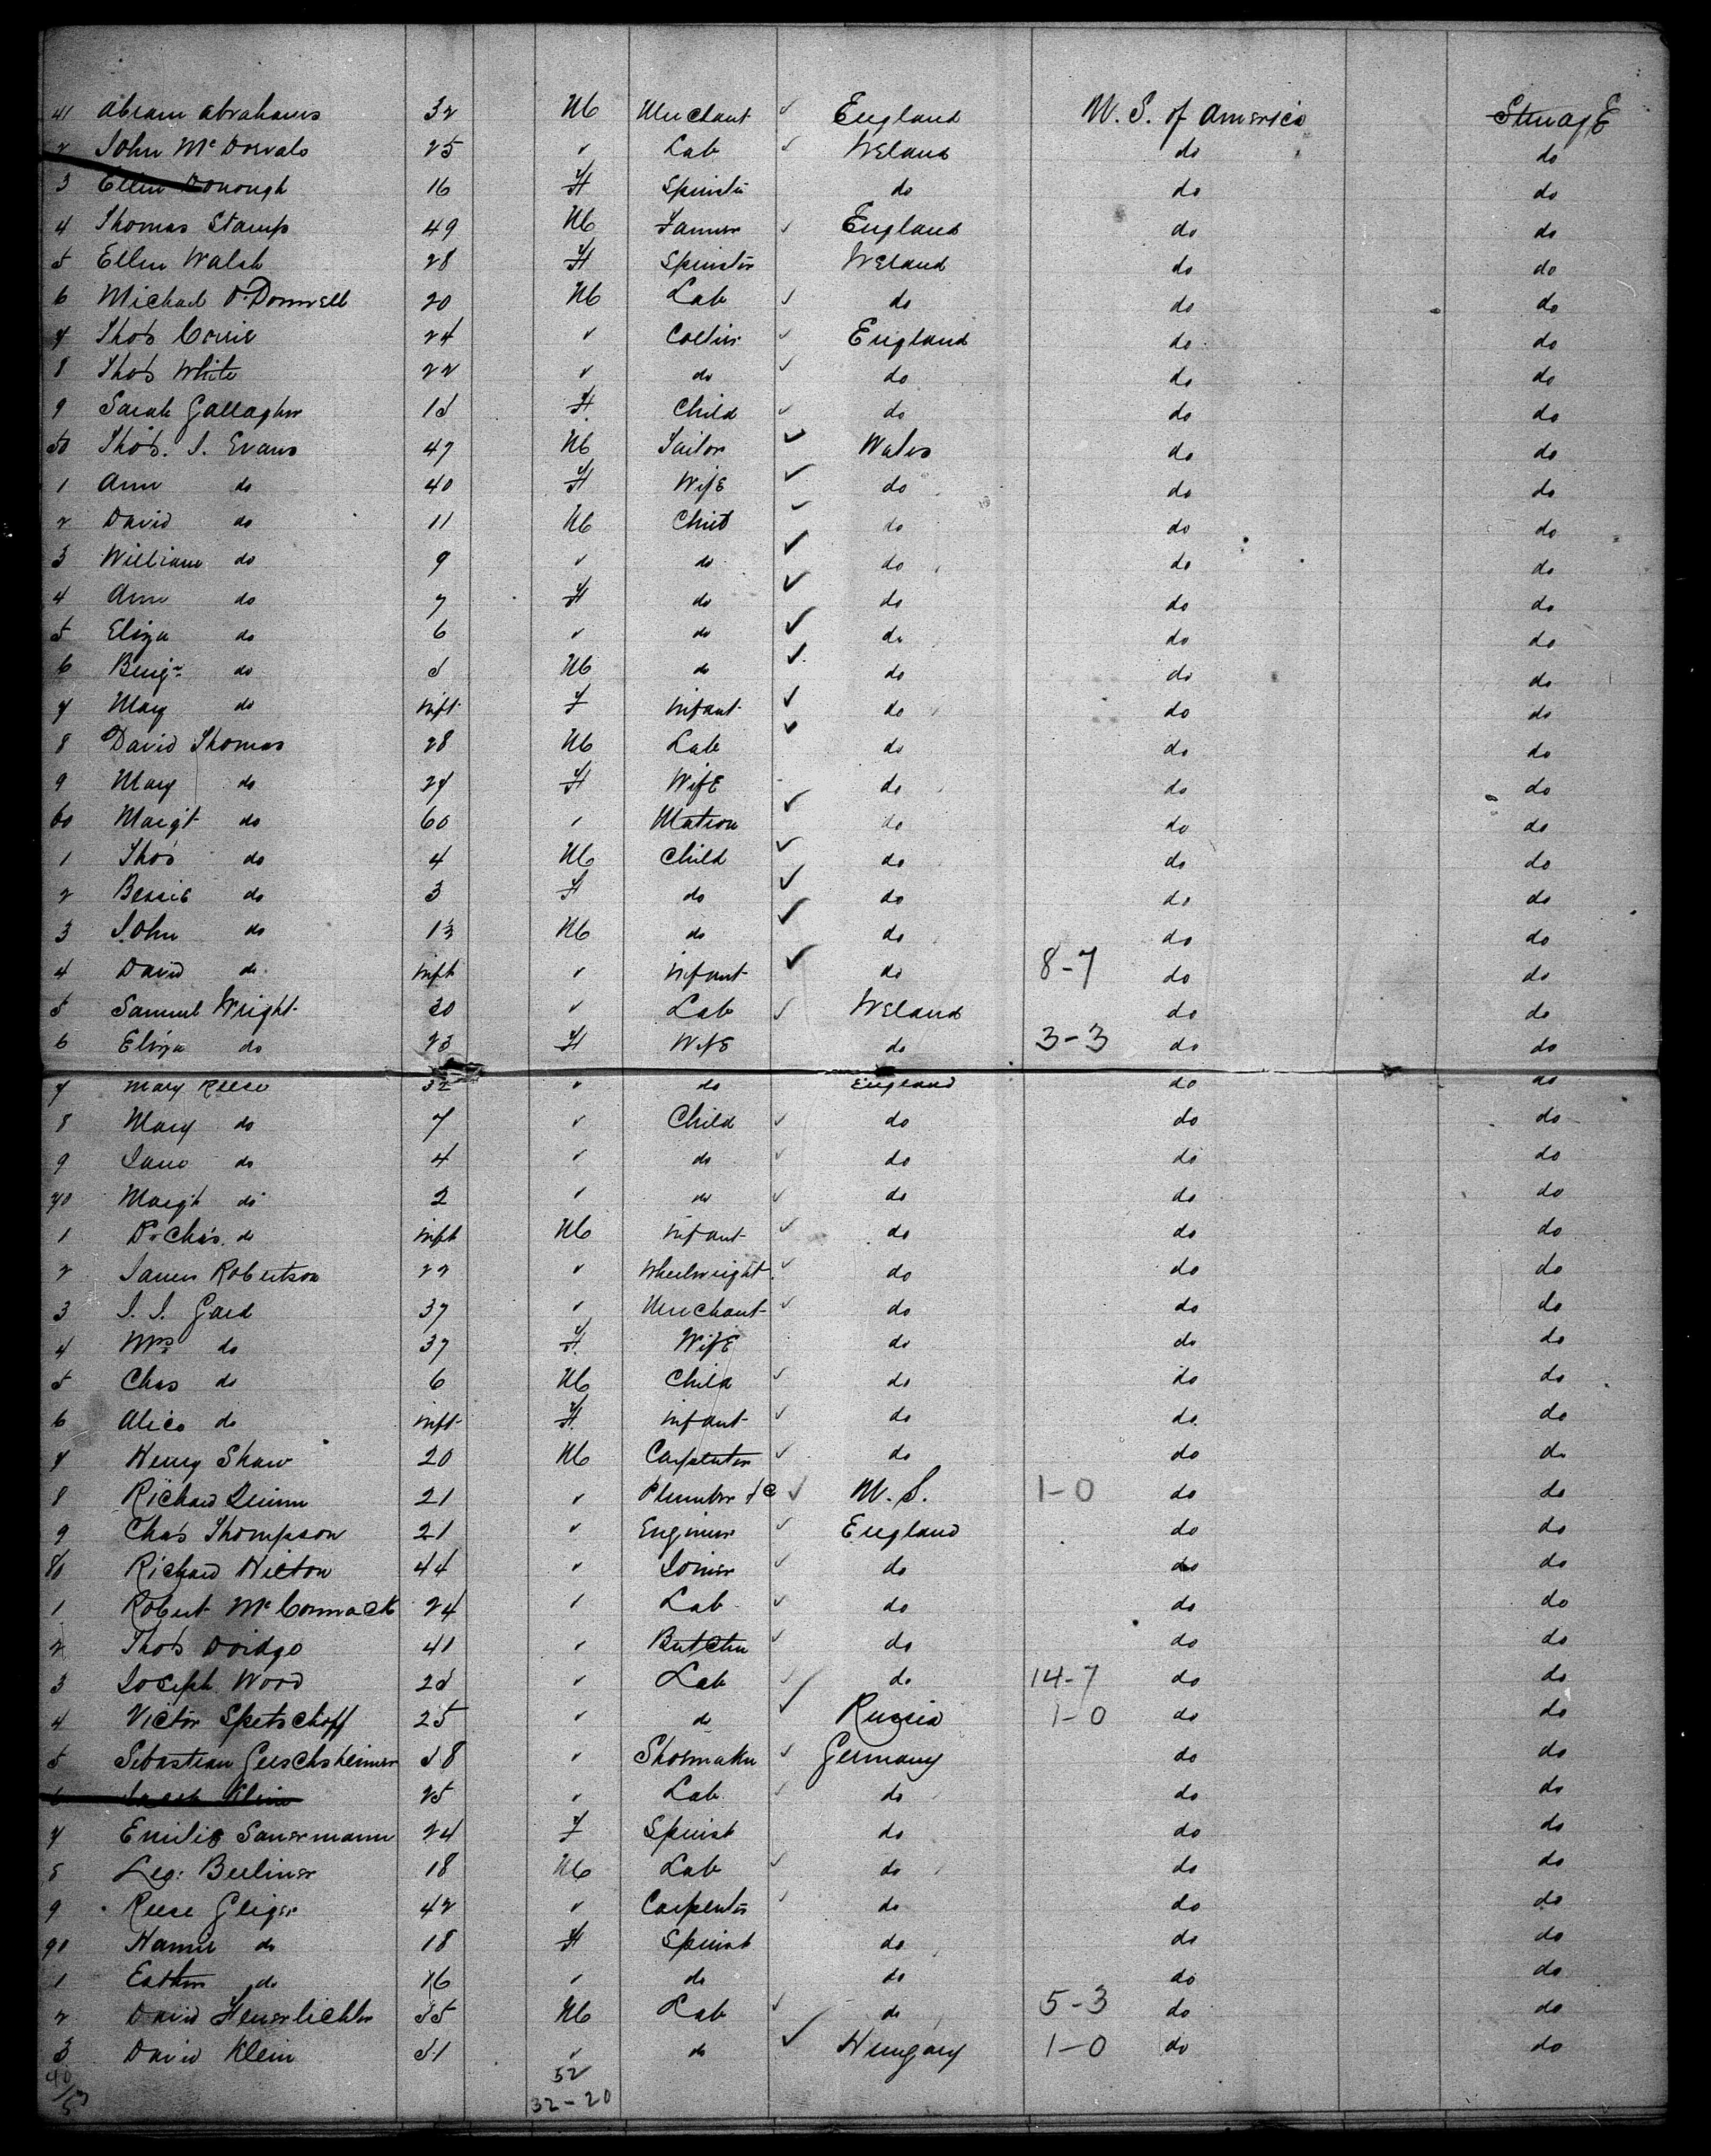 41 Abram Abrahams 32 M Merchant ✓ England U. S. of America Steerage
2 John Mc 25 ✓ Lab ✓ Ireland do do
3 Ellen Donough 16 F Spinster do do do
4 Thomas Stamp 49 M Farmer ✓ England do do
5 Ellen Walsh 28 F Spinster Ireland do do
6 Michael O'Donnell 20 M Lab ✓ do do do
7 Thos 24 ✓ Collier ✓ England do do
8 Thos White 22 ✓ do ✓ do do do
9 Sarah Gallagher F Child ✓ do do do
50 Thos. J. Evans 47 M Tailor ✓ Wales do do
1 Ann do 40 F Wife ✓ do do do
2 David do 11 M Child ✓ do do do
3 William do 9 ✓ do ✓ do do do
4 Ann do 7 F do ✓ do do do
5 Eliza do 6 ✓ do ✓ do do do
6 Benjn do 5 M do ✓ do do do
7 Mary do inft F infant ✓ do do do
8 David Thomas 28 M Lab ✓ do do do
9 Mary do 27 F Wife do do do
60 Margt do 60 ✓ Matron ✓ do do do
1 Thos do 4 M Child ✓ do do do
2 Bessie do 3 F do ✓ do do do
3 John do M do ✓ do do do
4 David do inft ✓ infant ✓ do 8-7 do do
5 Samuel Wright 30 ✓ Lab ✓ Ireland do do
6 Eliza do 23 F Wife do 3-3 do do
7 Mary Reese 32 ✓ do England do do
8 Mary do 7 ✓ Child ✓ do do do
9 Jane do 4 ✓ do ✓ do do do
70 Margt do 2 ✓ do ✓ do do do
1 Chas. do inft M infant ✓ do do do
2 James Robertson 22 ✓ Wheelwright ✓ do do do
3 Gard 37 ✓ Merchant ✓ do do do
4 Mrs do 37 F Wife do do do
5 Chas do 6 M Child ✓ do do do
6 Alice do inft F infant ✓ do do do
7 Henry Shaw 20 M Carpenter ✓ do do do
8 Richard Quinn 21 ✓ Plumber &c ✓ U. S. 1-0 do do
9 Chas Thompson 21 ✓ Engineer ✓ England do do
80 Richard Hilton 44 ✓ Joiner ✓ do do do
1 Robert McCormack 24 ✓ Lab ✓ do do do
2 Thos Doidge 41 ✓ Butcher ✓ do do do
3 Joseph Wood 25 ✓ Lab ✓ do 14-7 do do
4 Victor Spetschoff 25 ✓ do ✓ Russia 1-0 do do
5 Sebastian 58 ✓ Shoemaker ✓ Germany do do
6 Jacob Klein 25 ✓ Lab ✓ do do do
7 Emilie Sauermann 24 F Spinst do do do
8 Leo: Berliner 18 M Lab ✓ do do do
9 Reese Geiger 42 ✓ Carpenter ✓ do do do
90 Hanni do 18 F Spinst do do do
1 Esther do 16 ✓ do do do do
2 David Feuerlichter 55 M Lab ✓ do 5-3 do do
3 David Klein 51 ✓ do ✓ Hungary 1-0 do do
52
32-20